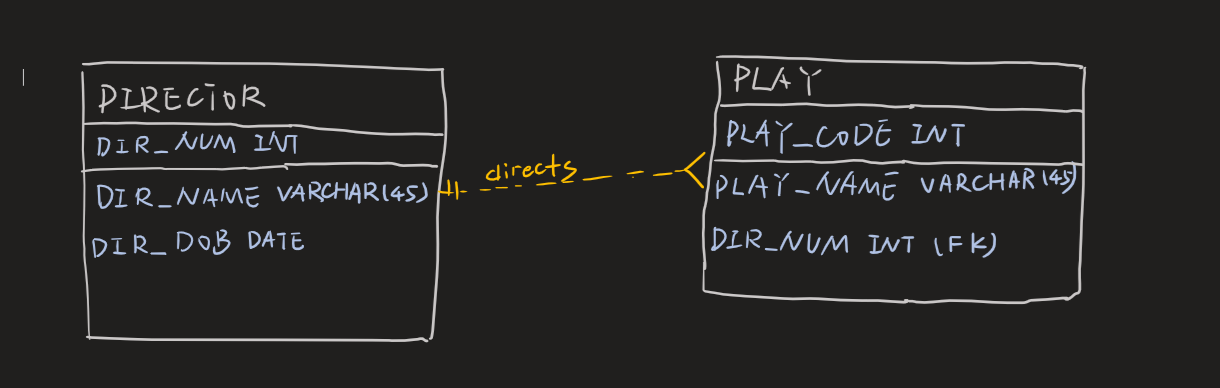 DIRECTOR
DIR_NUM INT
DIR_NAME VARCHAR(45)
DIR_DOB DATE
directs
PLAY
PLAY_CODE INT
PLAY_NAME VARCHAR(45)
DIR_NUM INT (FK)